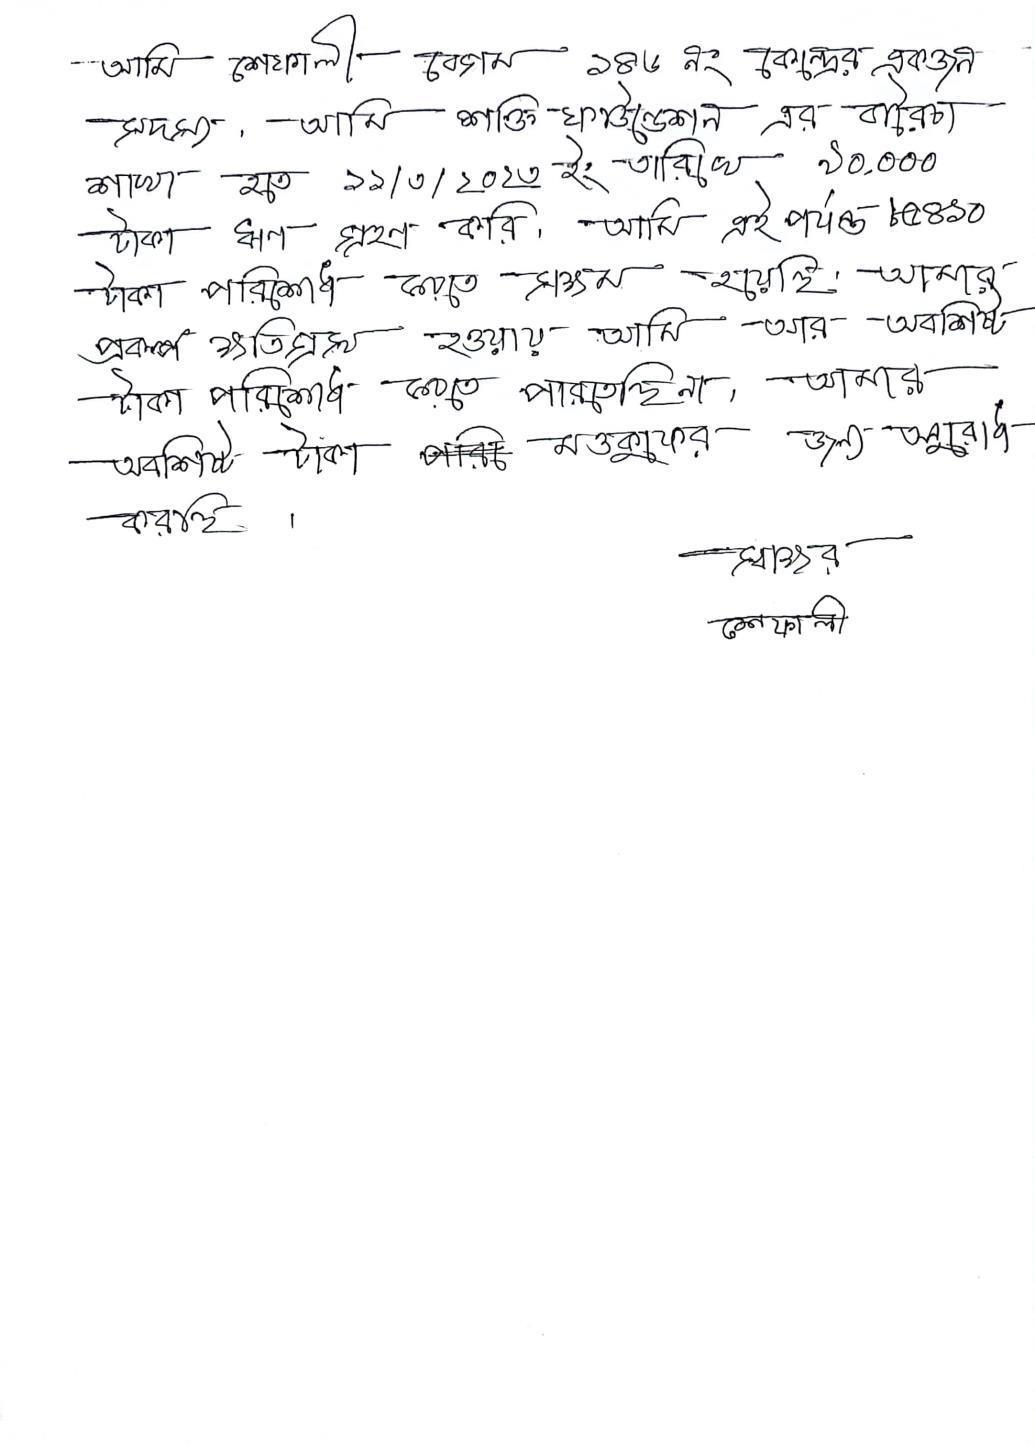 আমি শেফালী বেগম ১৪৬ নং কেন্দ্রের একজন
সদস্য। আমি শক্তি ফাউন্ডেশন এর বারৈচা
শাখা হতে ১১/৩/২০২৩ ইং তারিখে ৯০,০০০
টাকা ঋণ গ্রহণ করি। আমি এই পর্যন্ত ৮৫৪১০
টাকা পরিশোধ করতে সক্ষম হয়েছি। আমার
প্রকল্প ক্ষতিগ্রস্থ হওয়ায় আমি আর অবশিষ্ট
টাকা পরিশোধ করতে পারতেছি না। আমার
অবশিষ্ট টাকা মওকুফের জন্য অনুরোধ
করছি ।
স্বাক্ষর
শেফালী